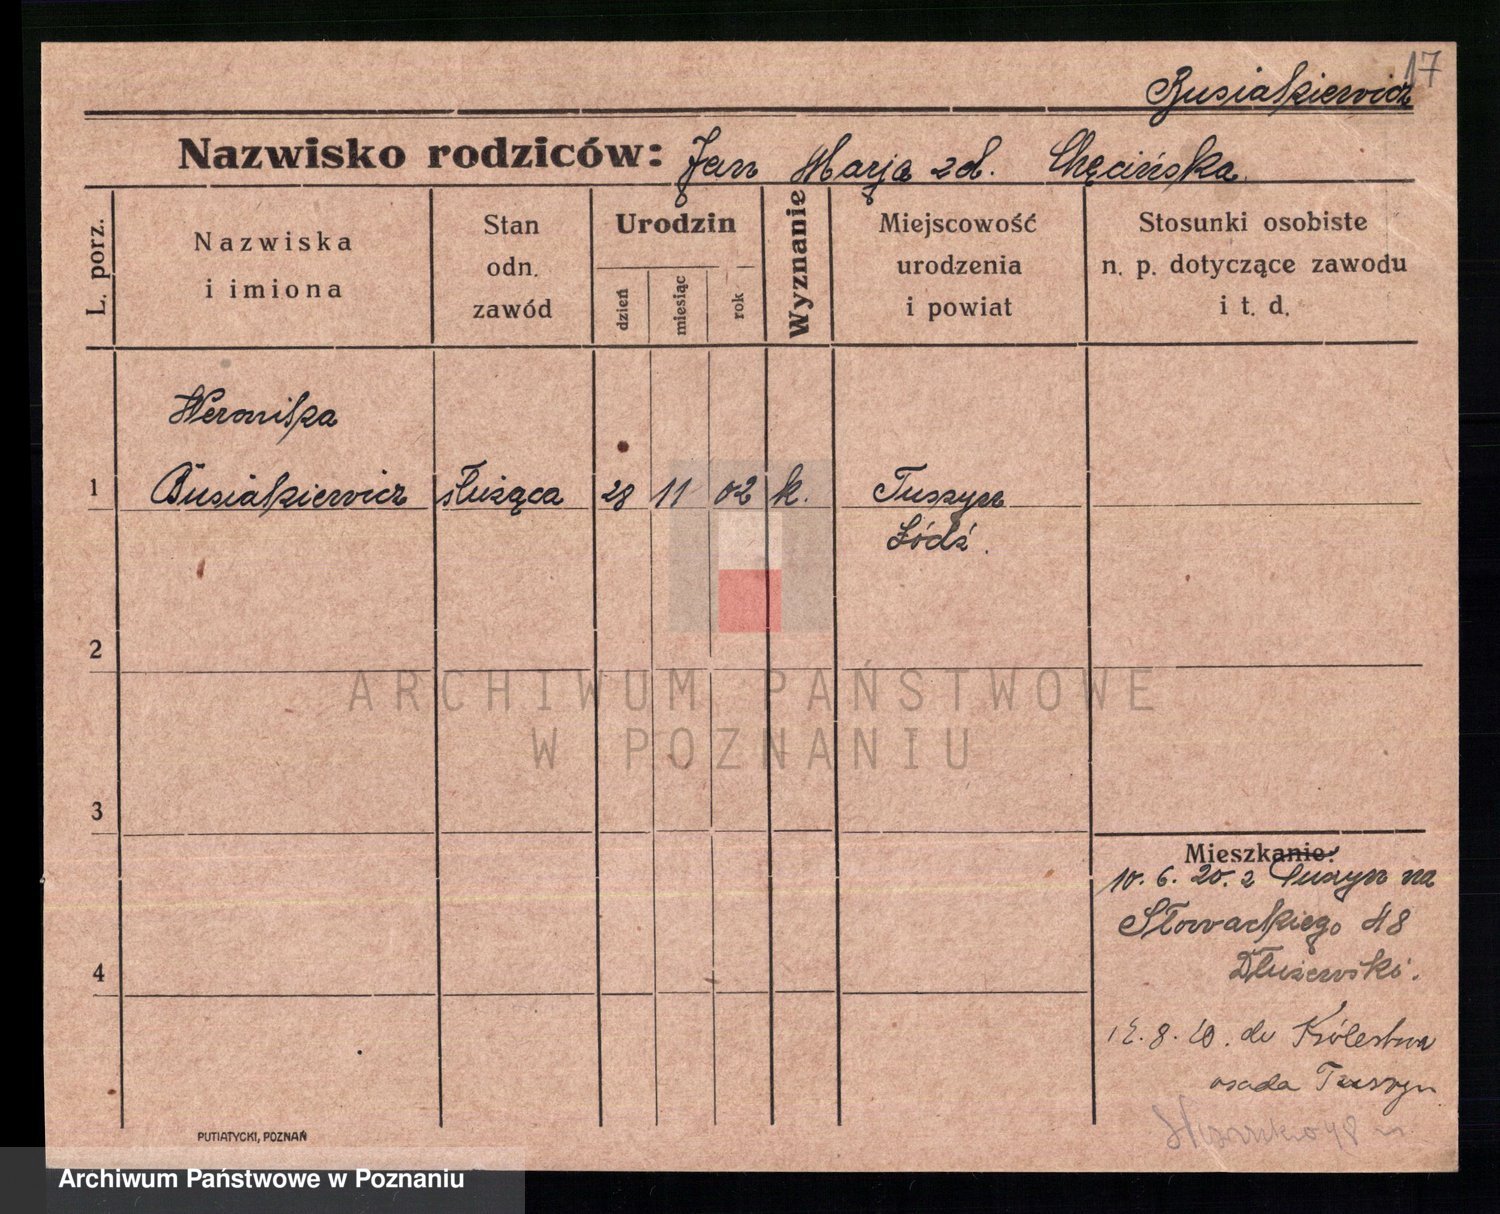 17
Busiałkiewicz
Nazwisko rodziców: Jan Marja zd. Chęcińska
L. porz.
Nazwiska i imiona
Stan odn. zawód
Urodzin
dzień
miesiąc
rok
Wyznanie
Miejscowość urodzenia i powiat
Stosunki osobiste n. p. dotyczące zawodu i t. d.
Weronika
1 Busiałkiewicz służąca 28 11 02 k. Tuszyn
Łódź.
2
ARCHIWUM PAŃSTWOWE
W POZNANIU
3
Mieszkanie:
10. 6. 20. z Tuszyn na
Słowackiego 48
Dłużewski.
4
12. 8. 20. do Królestwa
osada Tuszyn
48
PUTIATYCKI, POZNAŃ
Archiwum Państwowe w Poznaniu